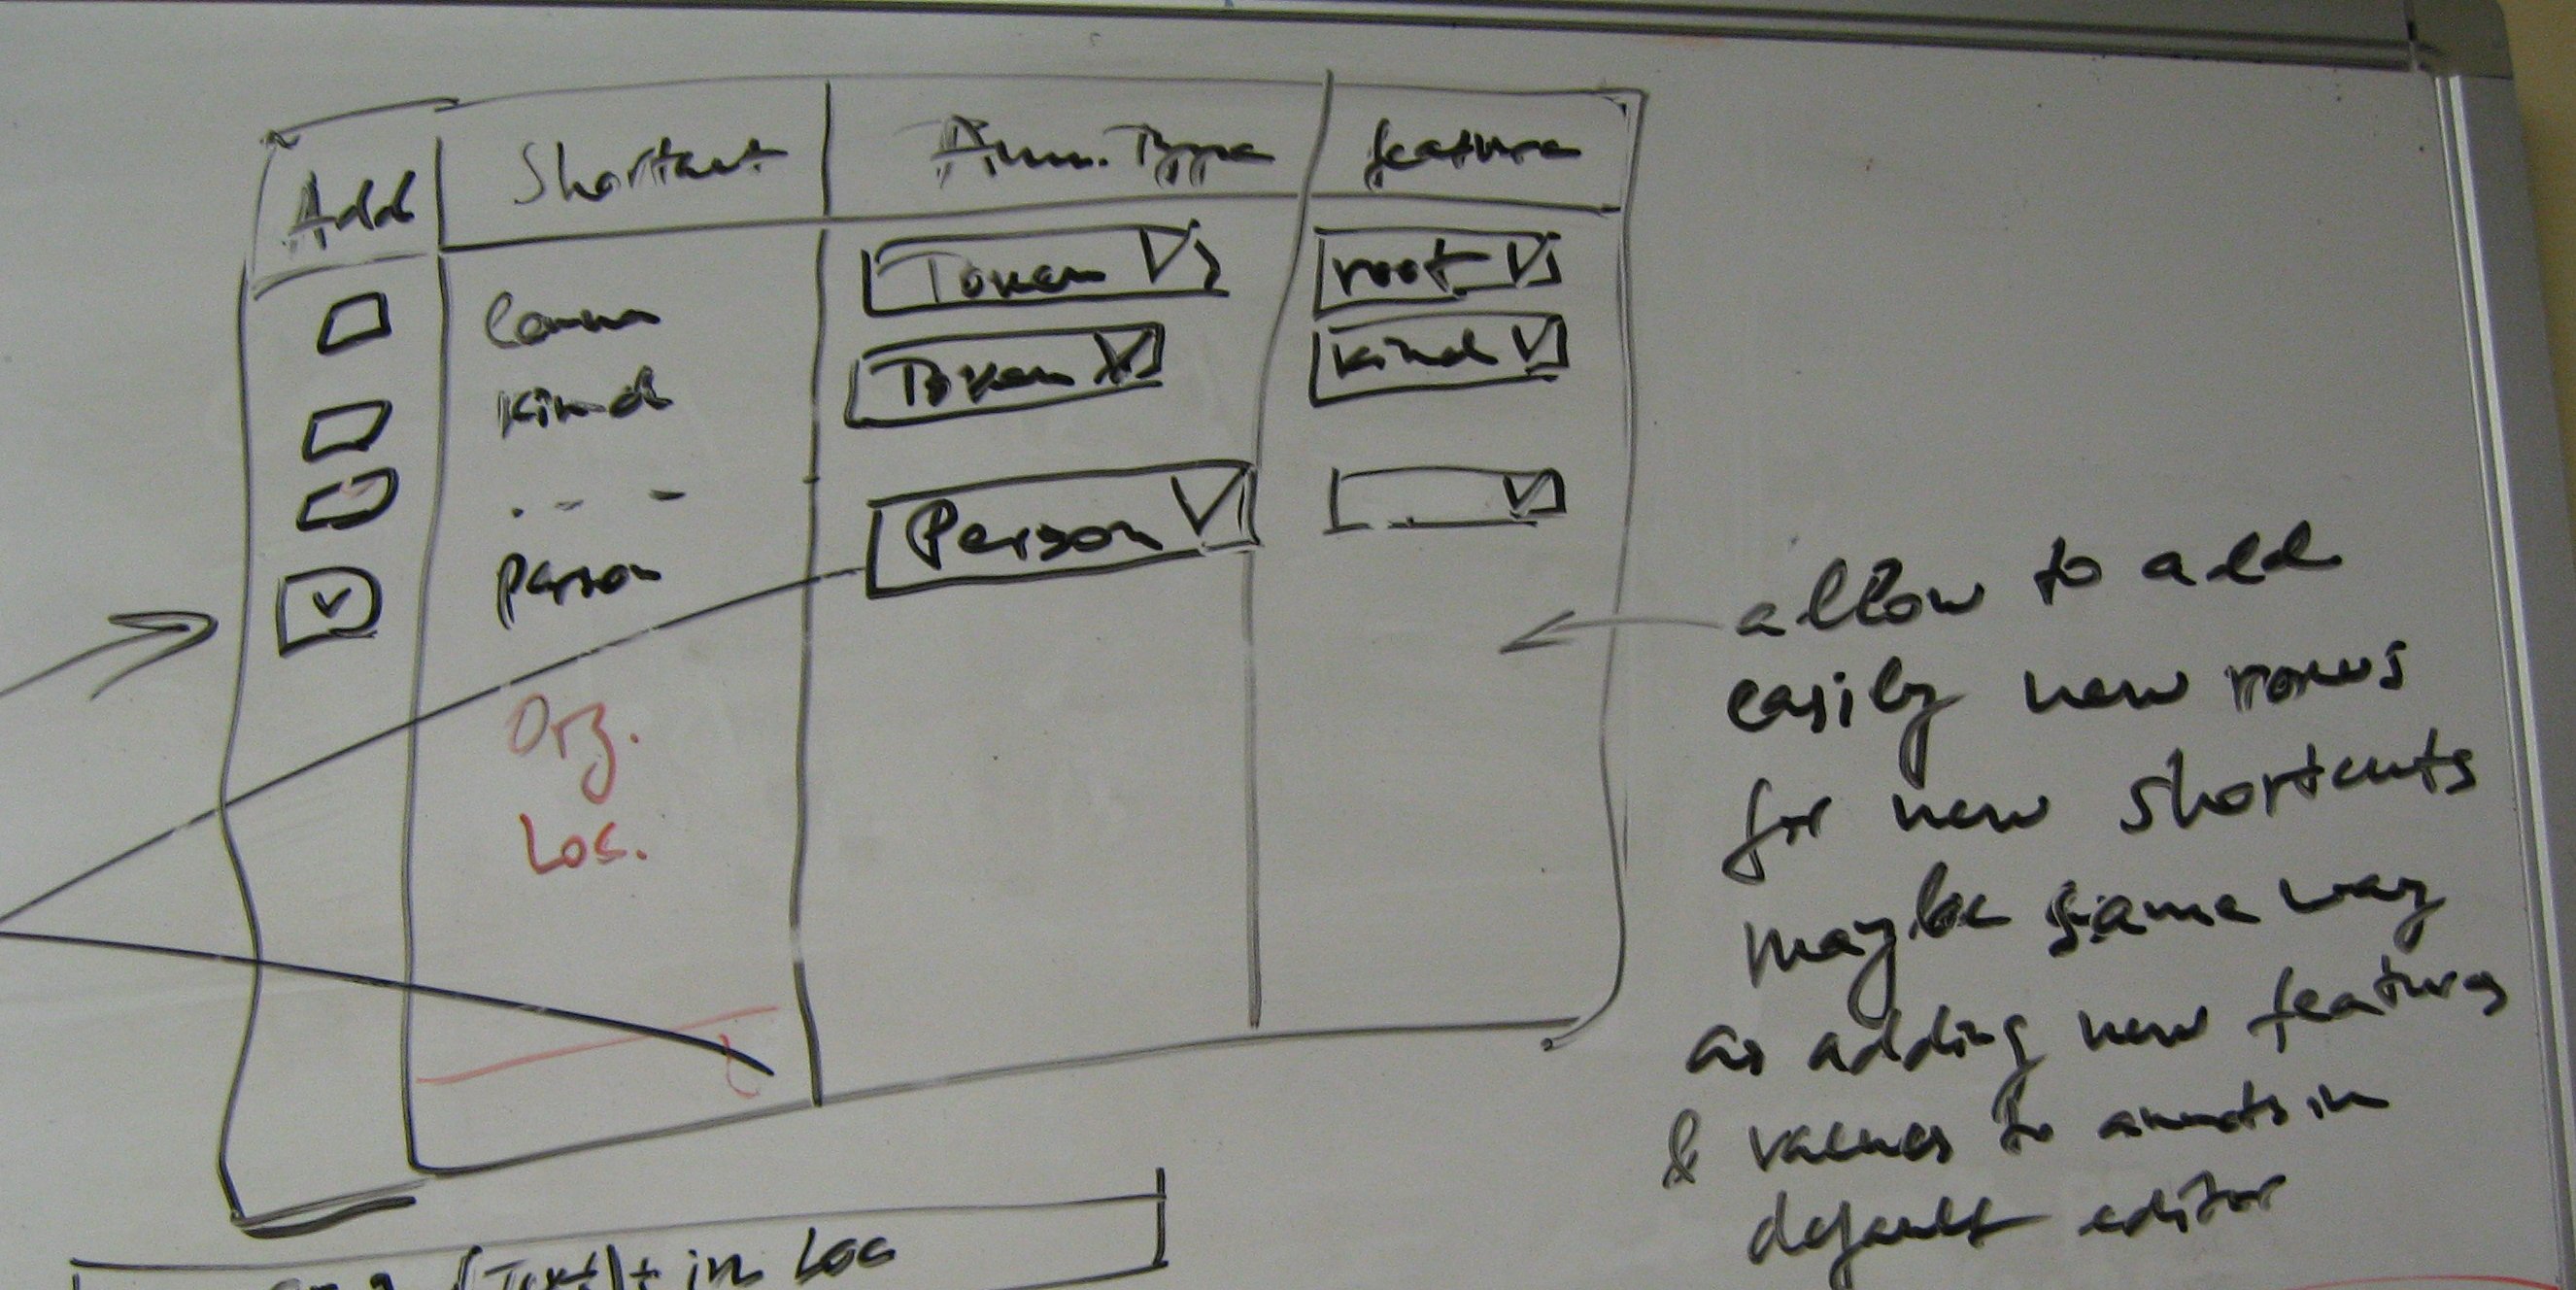 Add Shortcut Ann. Type feature
Token root
lemma
Token kind
kind
. - -
Person
person
Org.
Loc.
allow to add
easily new rows
for new shortcuts
maybe same way
as adding new features
& values to annots in
default editor
(Text)+ in Loc